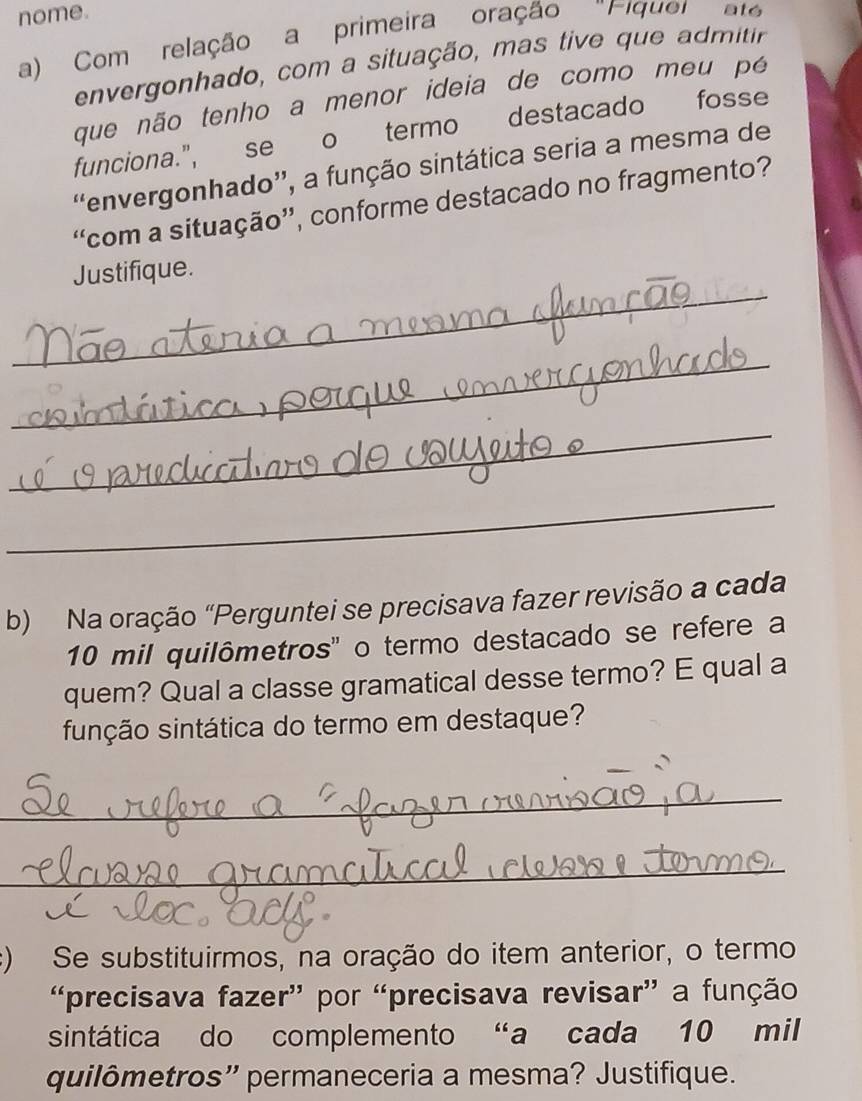 nome.
a) Com relação a primeira oração "Fiquei até
envergonhado, com a situação, mas tive que admitir
que não tenho a menor ideia de como meu pé
funciona.", se o termo destacado fosse
“envergonhado”, a função sintática seria a mesma de
“com a situação”, conforme destacado no fragmento?
Justifique.
Não teria a mesma função
sintática, porque envergonhado
é o predicativo do sujeito.
b) Na oração “Perguntei se precisava fazer revisão a cada
10 mil quilômetros” o termo destacado se refere a
quem? Qual a classe gramatical desse termo? E qual a
função sintática do termo em destaque?
Se refere a “fazer revisão”, a
classe gramatical desse termo
é loc. adj.
) Se substituirmos, na oração do item anterior, o termo
“precisava fazer” por “precisava revisar” a função
sintática do complemento “a cada 10 mil
quilômetros” permaneceria a mesma? Justifique.